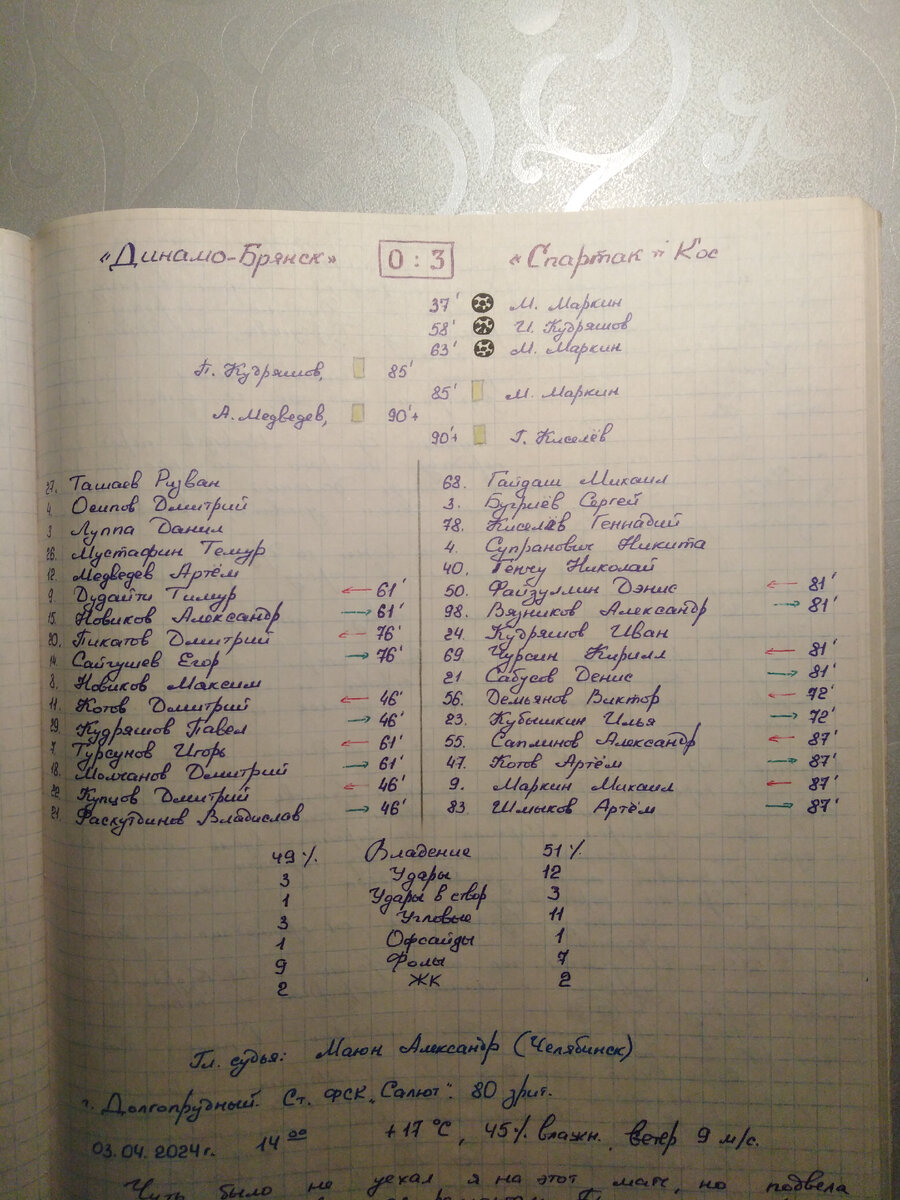 «Динамо-Брянск» 0:3 «Спартак» Кос
37' М. Маркин
58' И. Кудряшов
63' М. Маркин
П. Кудряшов, 85'
85' М. Маркин
А. Медведев, 90'+
90'+ Г. Киселёв
27. Ташаев Ризван
4. Осипов Дмитрий
3 Луппа Данил
26. Мустафин Темур
12. Медведев Артём
9. Дудайти Тимур ← 61'
15. Новиков Александр → 61'
20. Пикатов Дмитрий ← 76'
14. Сайгушев Егор → 76'
8. Новиков Максим
11. Котов Дмитрий ← 46'
29. Кудряшов Павел → 46'
7. Турсунов Игорь ← 61'
18. Молчанов Дмитрий → 61'
22. Купцов Дмитрий ← 46'
21. Фаскутдинов Владислав → 46'
68. Гайдаш Михаил
3. Бугриёв Сергей
78. Киселёв Геннадий
4. Супранович Никита
40. Генчу Николай
50. Файзуллин Дэнис ← 81'
98. Вязников Александр → 81'
24. Кудряшов Иван
69 Чурсин Кирилл ← 81'
21 Сабусов Денис → 81'
56. Демьянов Виктор ← 72'
23. Кубышкин Илья → 72'
55. Саплинов Александр ← 87'
47. Котов Артём → 87'
9. Маркин Михаил ← 87'
83 Шмыков Артём → 87'
49% Владение 51%
3 Удары 12
1 Удары в створ 3
3 Угловые 11
1 Офсайды 1
9 Фолы 7
2 ЖК 2
Гл. судья: Маюн Александр (Челябинск)
г. Долгопрудный. Ст. ФСК „Салют". 80 зрит.
03.04.2024г. 14⁰⁰ +17°C, 45% влажн. ветер 9 м/с.
Чуть было не уехал я на этот матч, но подвела